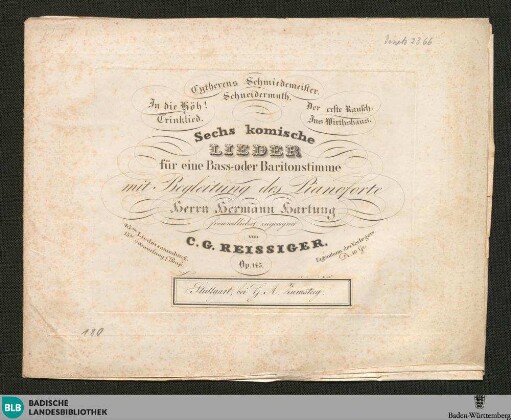 Druck 2366
Cytherens Schmiedemeister.
Schneidermuth.
In die Höh!
Trinklied.
Der erste Rausch.
Ins Wirthshaus.
Sechs komische
LIEDER
für eine Bass- oder Baritonstimme
mit Begleitung des Pianoforte
Herrn Hermann Hartung
freundlichst zugeeignet
von
C. G. REISSIGER.
Op. 145.
Liedersammlung.
Eigenthum des Verlegers.
Stuttgart, bei G. A. Zumsteeg.
180
BLB
BADISCHE
LANDESBIBLIOTHEK
Baden-Württemberg